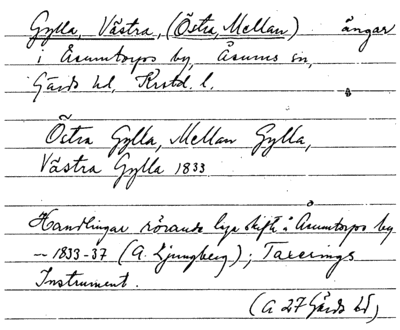 Gylla, Västra, (Östra, Mellan) ängar
i Åsumtorps by, Åsums sn,
Gärds hd, Krstd. l.
Östra Gylla, Mellan Gylla,
Västra Gylla 1833
Handlingar rörande laga skifte å Åsumtorps by
– 1833-37 (A. Ljungberg); Taxerings
Instrument.
(A 27 Gärds hd)